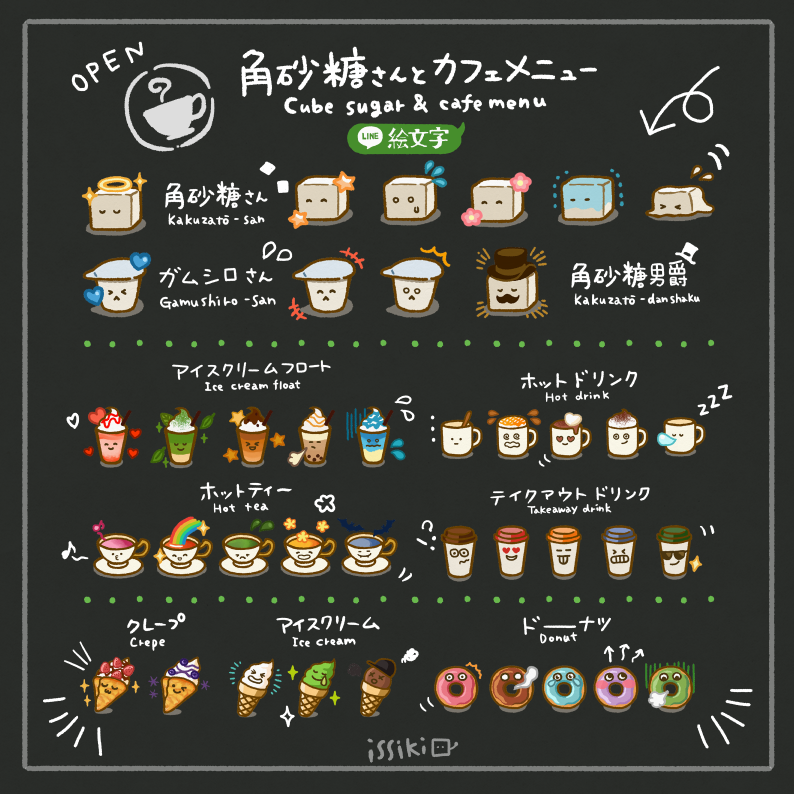 OPEN
角砂糖さんとカフェメニュー
Cube sugar & cafe menu
LINE 絵文字
角砂糖さん
Kakuzatō-san
ガムシロさん
Gamushiro-san
角砂糖男爵
Kakuzatō-danshaku
アイスクリームフロート
Ice cream float
ホットドリンク
Hot drink
zzz
ホットティー
Hot tea
テイクアウトドリンク
Takeaway drink
クレープ
Crepe
アイスクリーム
Ice cream
ドーナツ
Donut
issiki